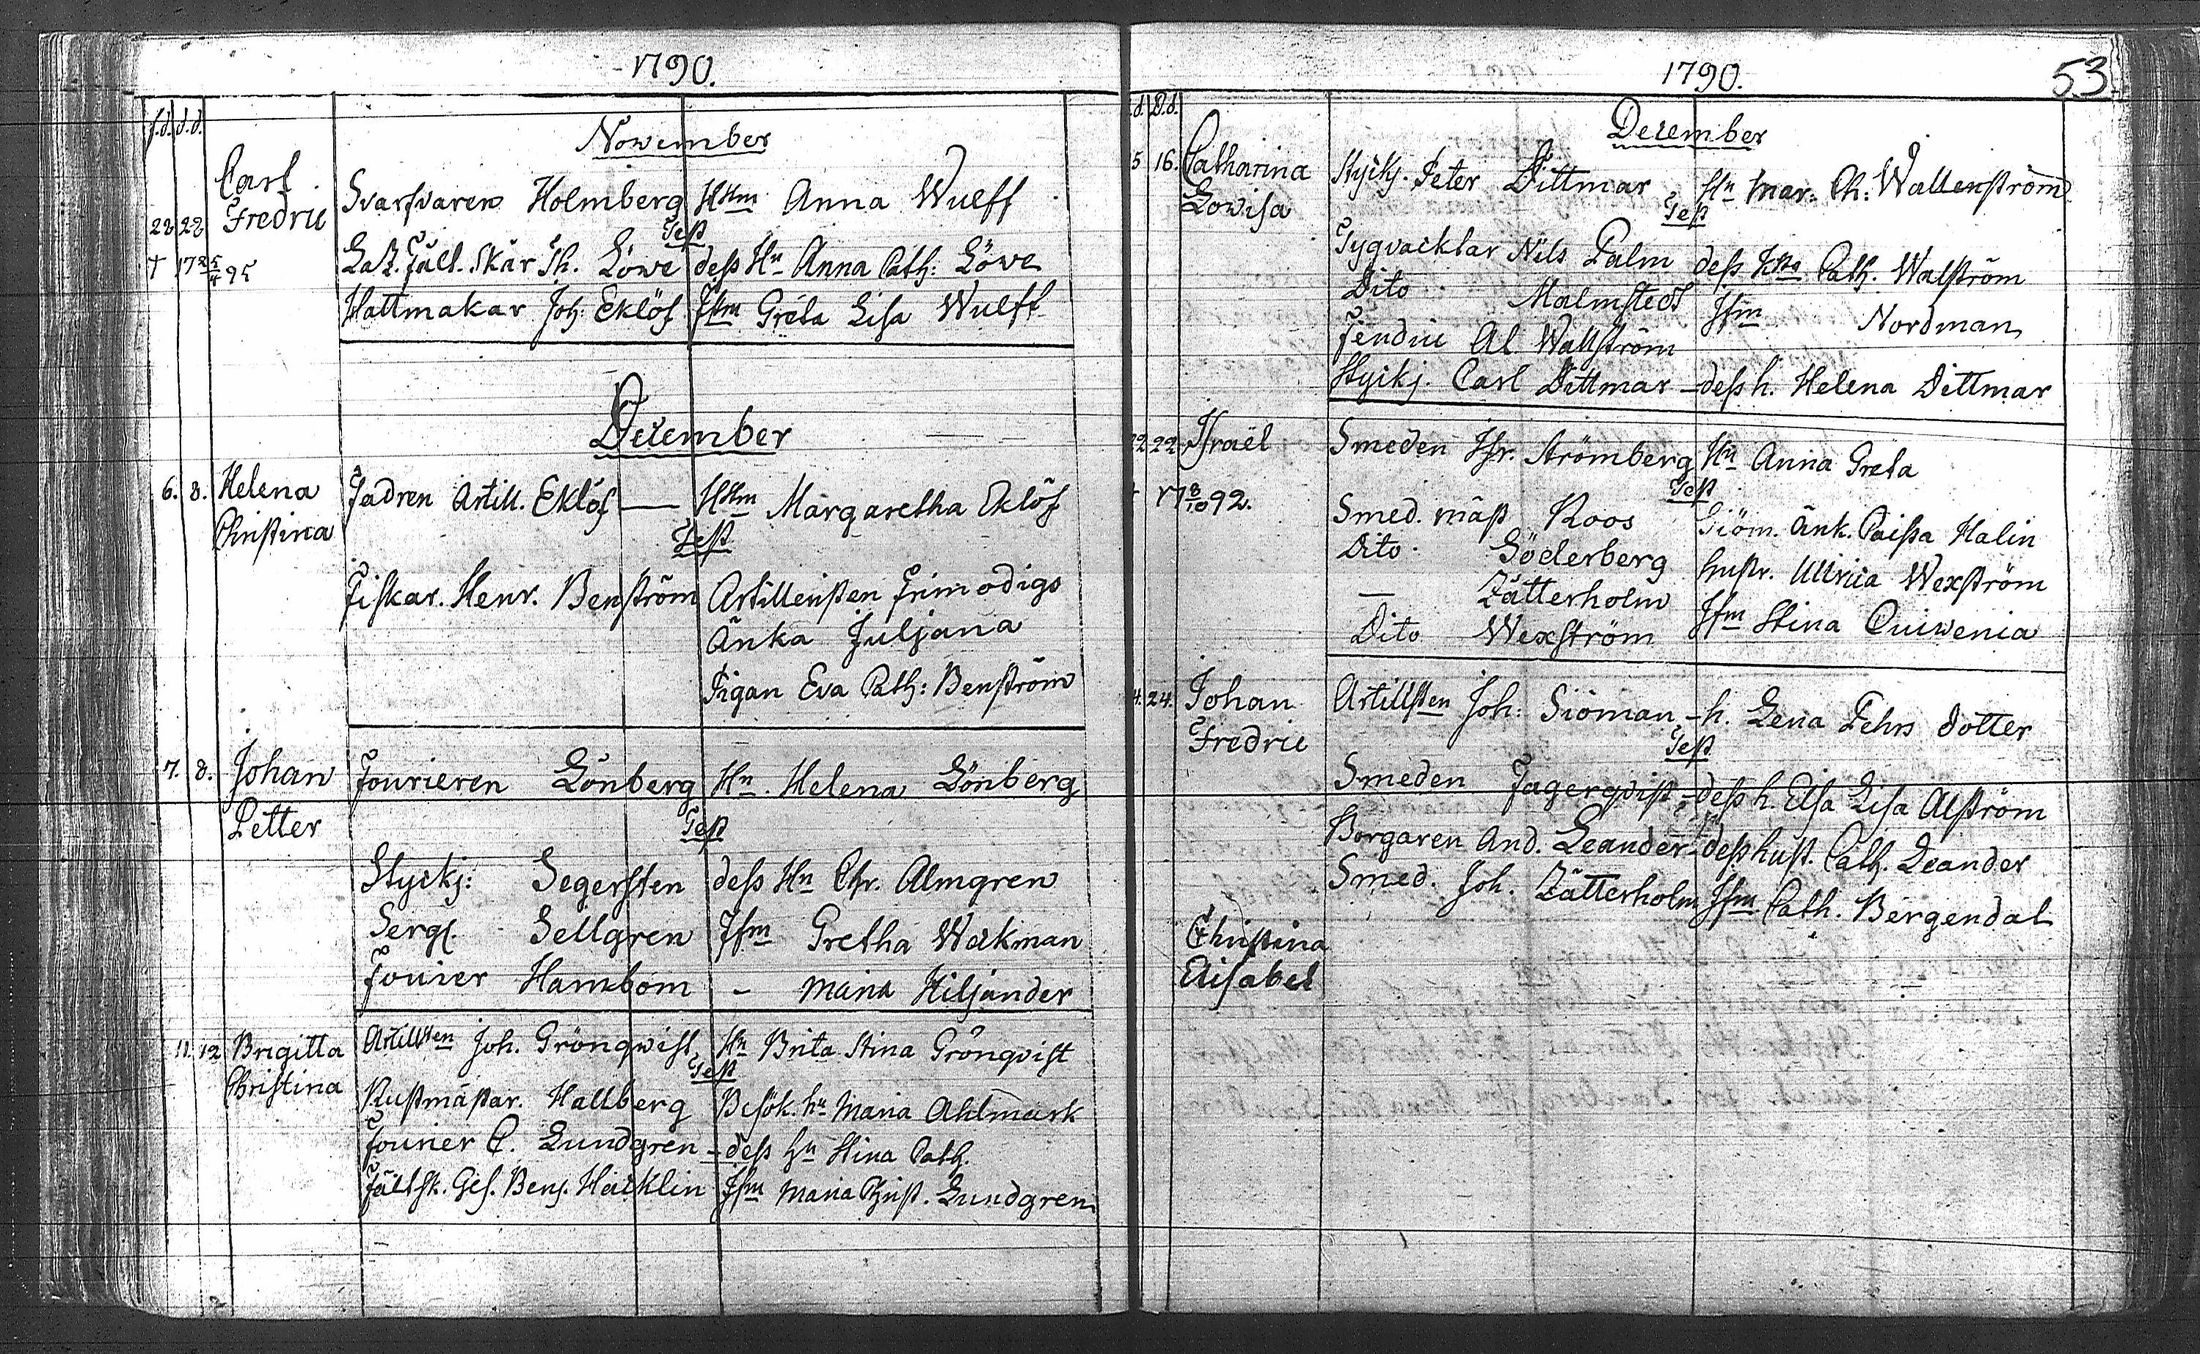 1790.
f.d. d.d.
November
Carl
Fredric
22 22
† 17 25/4 95
Svarfvaren Holmberg Hstm Anna Wulff
Test
Laz. Fält. Skär Th. Löwe dess Hu Anna Cath: Löwe
Hattmakar Joh: Eklöf Jfm Greta Lisa Wulff
December
6. 8. Helena
Christina
Fadren Artill. Eklöf — Hstm Margaretha Eklöf
Test
Fiskar. Henr. Benström Artilleristen Frimodigs
Änka Juljana
Pigan Eva Cath: Benström
7. 8. Johan
Petter
Fourieren Lönberg Hu. Helena Lönberg
Test
Styckj: Segersten dess Hu Chr. Almgren
Serg. Sellgren Jfm Gretha Wekman
Fourier Hamnbom - Maria Hiljander
11. 12 Brigitta
Christina
Artillsten Joh. Grönqvist Hu Brita Stina Grönqvist
Test
Rustmästar. Hallberg Besök. hu Maria Ahlmark
Fourier C. Lundgren - dess hu Stina Cath.
Fältsk. Ges. Benj. Hacklin Jfm Maria Christ. Lundgren
1790. 53.
.d. D.d.
December
5 16. Catharina
Lowisa
Styckj. Peter Dittmar Hu Mar. Ch: Wallenström
Test
Tygvacktar Nils Palm dess Hus Cath. Walström
Dito Malmstedt Jfm Nordman
Fendric Al. Wallström
Styckj. Carl Dittmar - dess h. Helena Dittmar
22 22 Israel
17 8/10 92.
Smeden Isr. Strömberg Hu Anna Greta
Test
Smed. mäst Roos Giöm. Änk. Caisa Halin
Dito. Söderberg hustr. Ullrica Wexström
— Zätterholm Jfm Stina Cuiwenia
Dito Wexström
4. 24. Johan
Fredric
Artillsten Joh: Siöman - h. Lena Pehrs dotter
Test
Smeden Fagerqvist - dess h. Elsa Lisa Alström
Borgaren And. Leander - dess hust. Cath. Leander
Smed. Joh. Zätterholm Jfm Cath. Bergendal
Christina
Elisabet